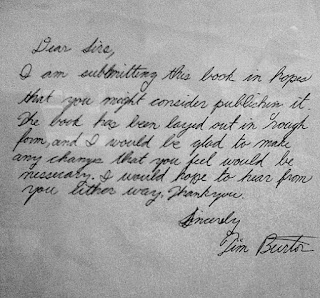 Dear Sirs,
I am submitting this book in hopes
that you might consider publishin it.
The book has been layed out in rough
form, and I would be glad to make
any changes that you feel would be
nissicary. I would hope to hear from
you either way. Thankyou.
Sincerely
Tim Burton